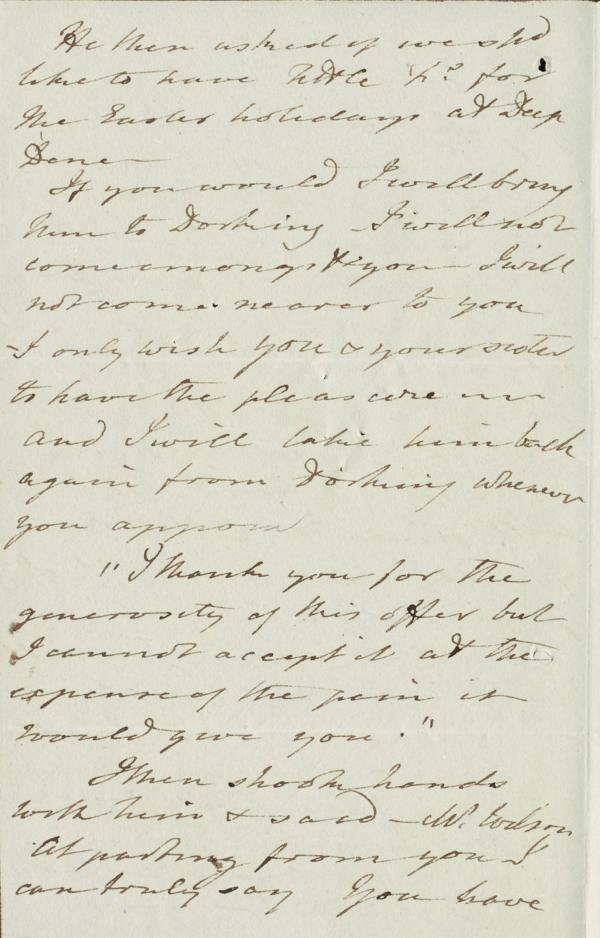 He then asked if we shd
like to have little for
the Easter holidays at Deep
Dene—
If you would I will bring
him to Dorking – I will not
come amongst you – I will
not come nearer to you
– I only wish you & your sister
to have the pleasure —
and I will take him back
again from Dorking whenever
you appoint
"I thank you for the
generosity of this offer but
I cannot accept it at the
expense of the pain it
would give you."
I then shook hands
with him & said – Mr. Wilson
At parting from you I
can truly say You have